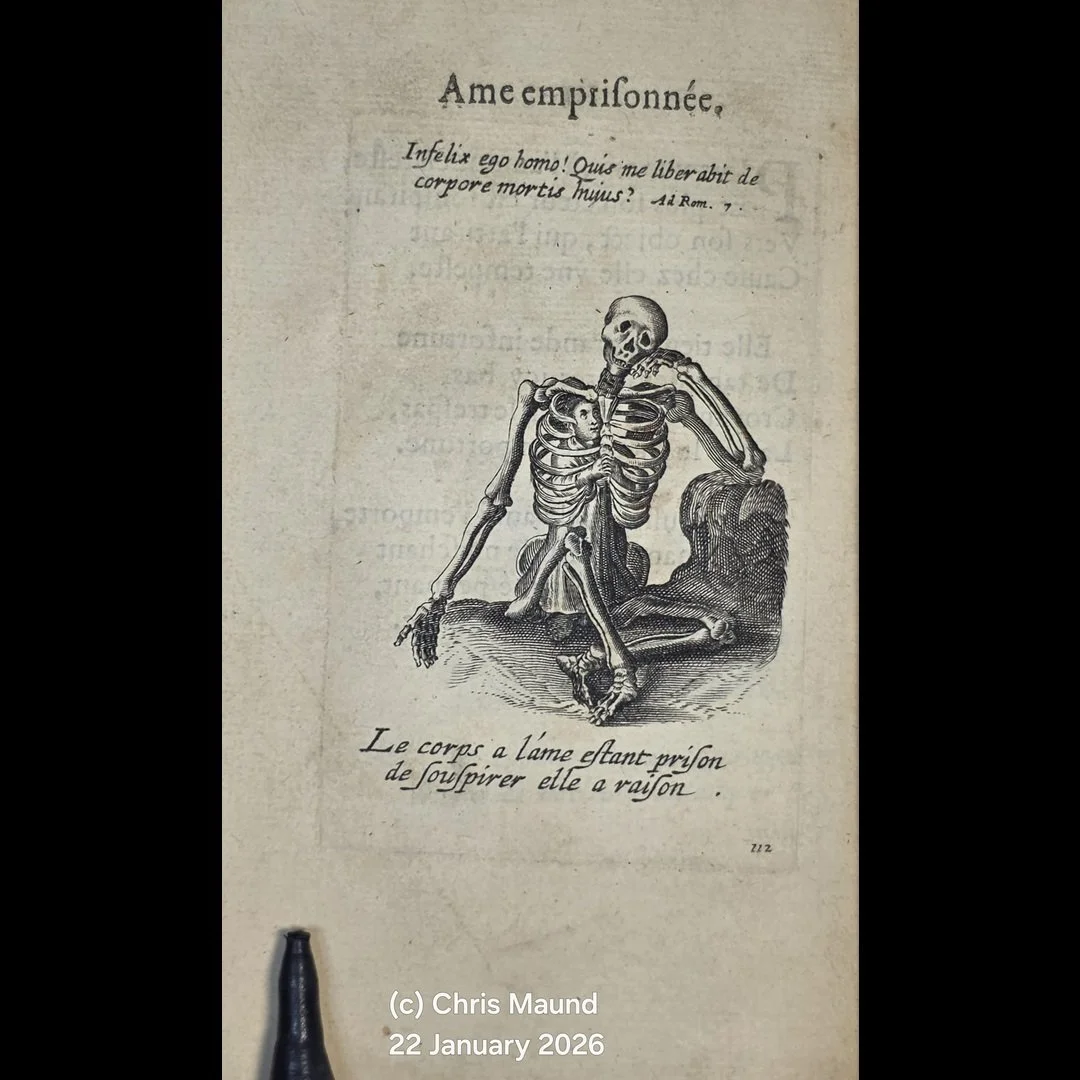 Ame empriſonnée,
Infelix ego homo! Quis me liberabit de
corpore mortis hujus? Ad Rom. 7.
Le corps a l'áme eſtant priſon
de ſouſpirer elle a raiſon .
112
(c) Chris Maund
22 January 2026